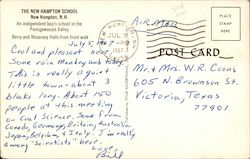 THE NEW HAMPTON SCHOOL
New Hampton, N. H.
An independent boy's school in the
Pemigewasset Valley
Berry and Meservey Halls from front walk
July 5, 1967
Cool and pleasant here,
Some rain Monday and today.
This is really a quiet
little town - about 3
blocks long. About 150
people at this meeting
on Coal Science. Some from
Canada, Germany, Britain, Australia,
Japan, Belgium, & Italy. I'm really
among "scientists" here.
Love,
Bill
Air Mail
NEW HAMPTON
JUL 5
1967
N.H.
POST CARD
PLACE
STAMP
HERE
Mr. & Mrs. W. R. Coons
605 N. Brownson St.
Victoria, Texas
77901